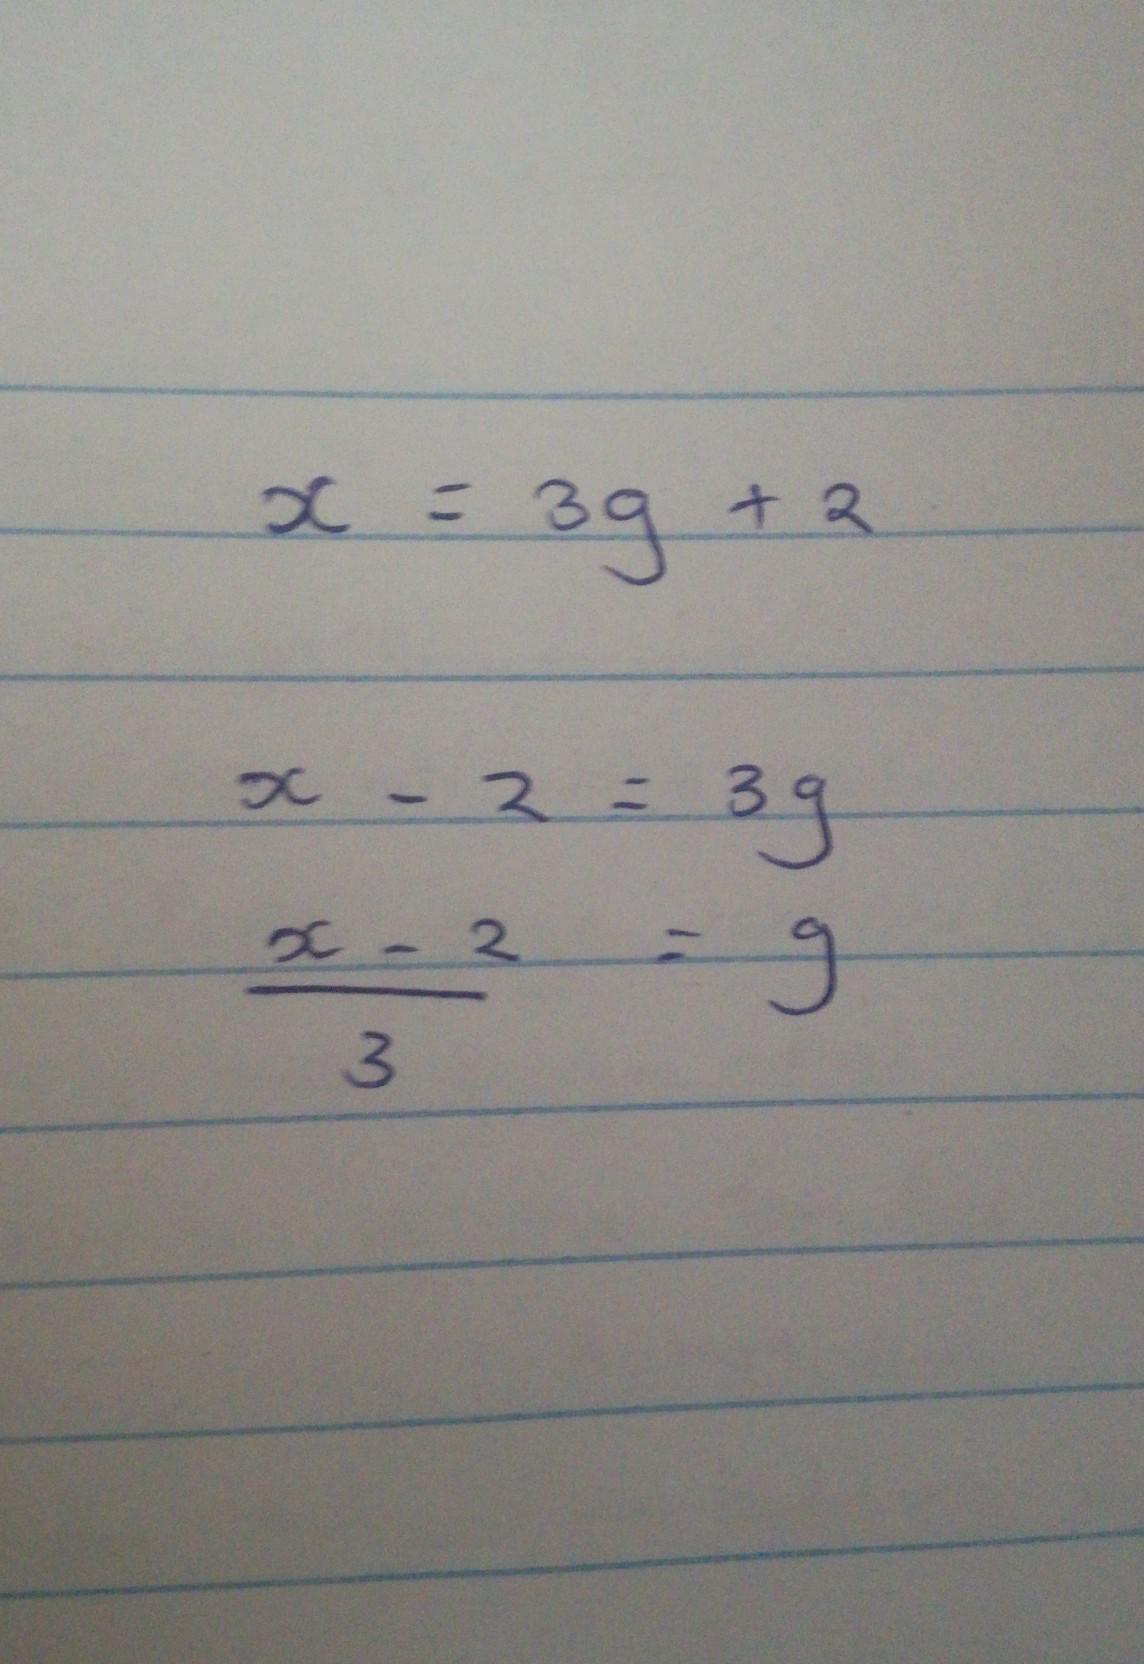 x = 3g + 2
x - 2 = 3g
x - 2 = g
3